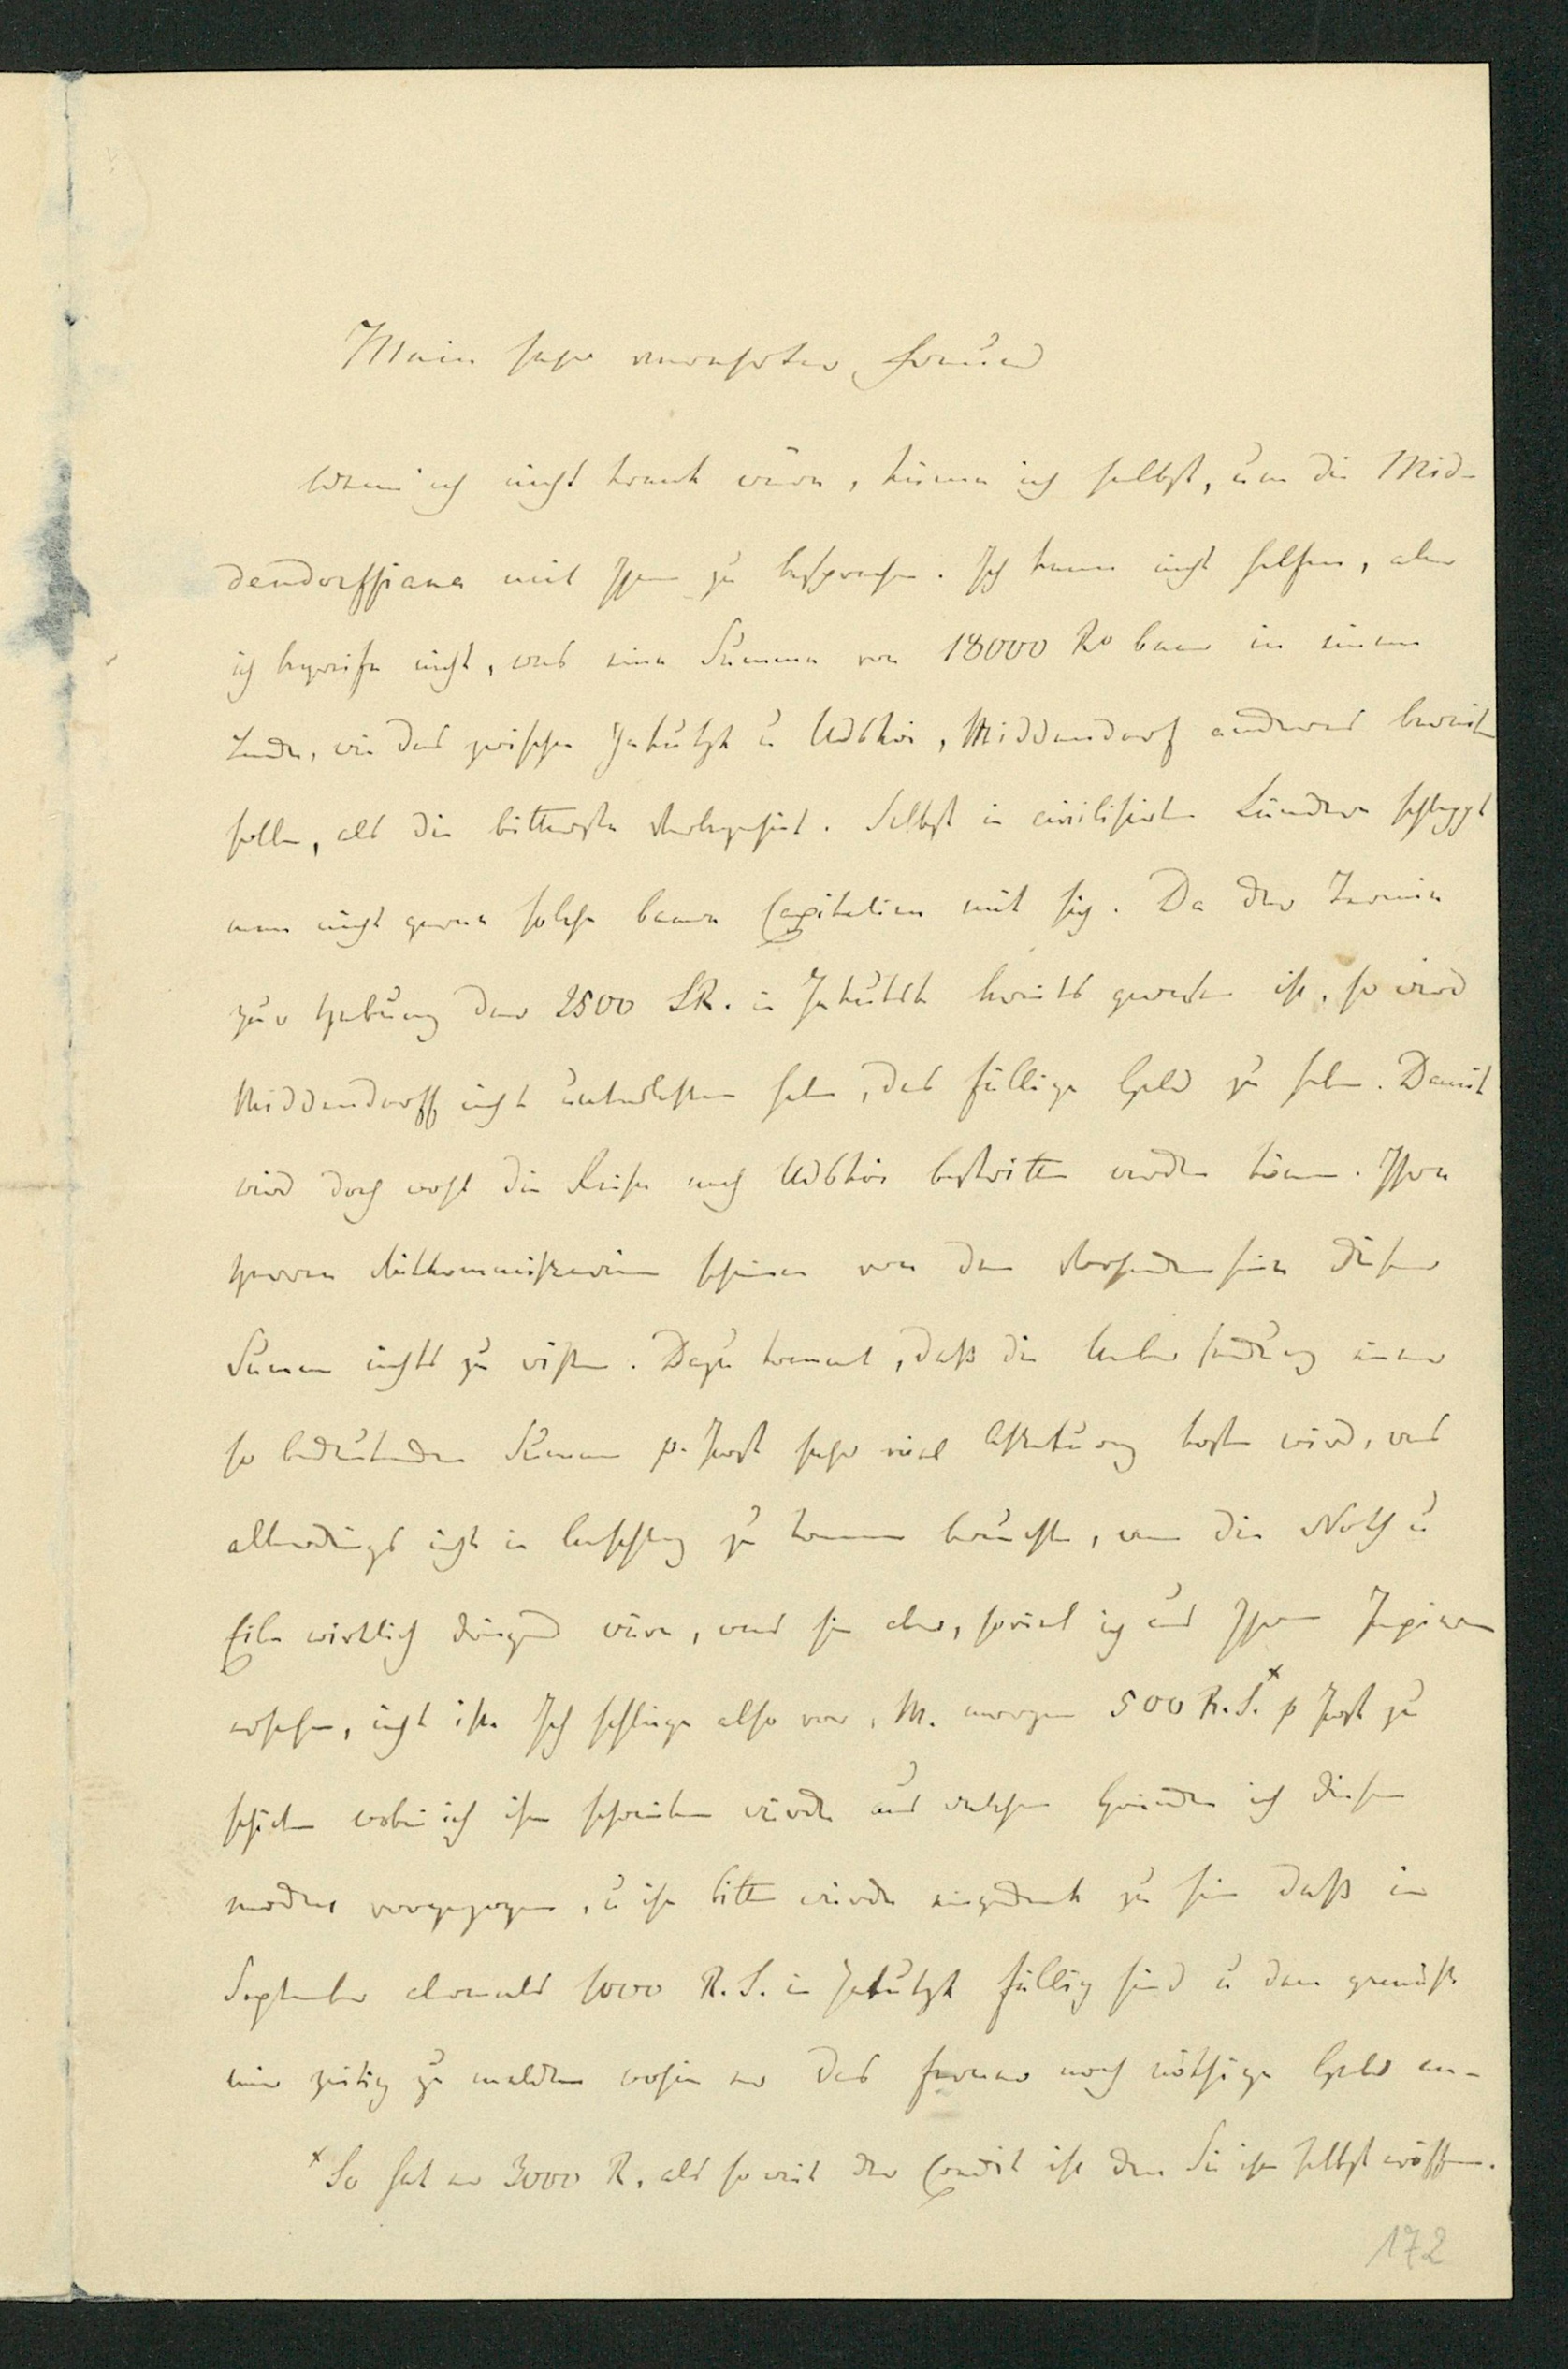 Mein sehr verehrter Freund
Wenn ich nicht krank wäre, käme ich selbst, um die Mid-
dendorffiana mit Ihnen zu besprechen. Ich kann nicht helfen, aber
ich begreife nicht, was eine Summe von 18000 Ro baar in einem
Lande, wie das zwischen Jakutzk u Udskoi, Middendorf anderes bereiten
solle, als die bitterste Verlegenheit. Selbst in civilisirten Ländern schleppt
man nicht gerne solche baare Capitalien mit sich. Da der Termin
zur Hebung der 2500 SR. in Jakutsk bereits gewesen ist, so wird
Middendorff nicht unterlassen haben, das fällige Geld zu heben. Damit
wird doch wohl die Reise nach Udskoi bestritten werden können. Ihre
Herren Mitkommissarien scheinen von dem Vorhandensein dieser
Summe nichts zu wissen. Dazu kommt, daß die Uebersendung einer
so bedeutenden Summe p. Post sehr viel Assekuranz kosten wird, was
allerdings nicht in Anschlag zu kommen brauchte, wenn die Noth u
Eile wirklich dringend wäre, was sie aber, soviel ich aus Ihren Papieren
ersehen, nicht ist. Ich schlage also vor, M. morgen 500 R. S.x p Post zu
schicken wobei ich ihm schreiben würde aus welchen Gründen ich diesen
modus vorgezogen, u ihn bitten würde eingedenk zu sein daß im
September abermals 1000 R. S. in Jakutzk fällig sind u dem gemäß
mir zeitig zu melden wohin er das ferner noch nöthige Geld an-
x So hat er 3000 R. als so weit der Credit ist den Sie ihm selbst eröffnen.
172